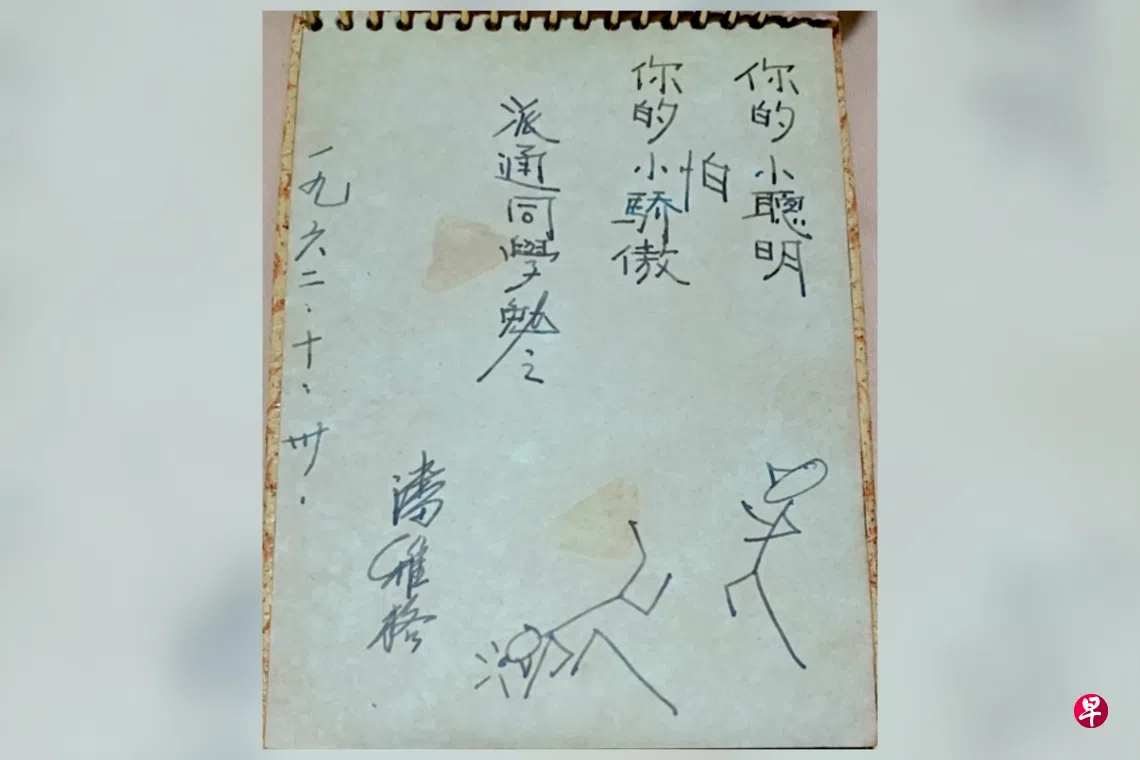 你的小聰明
怕
你的小驕傲
派通同學勉之
潘雅格
一九六二、十、卅.
早